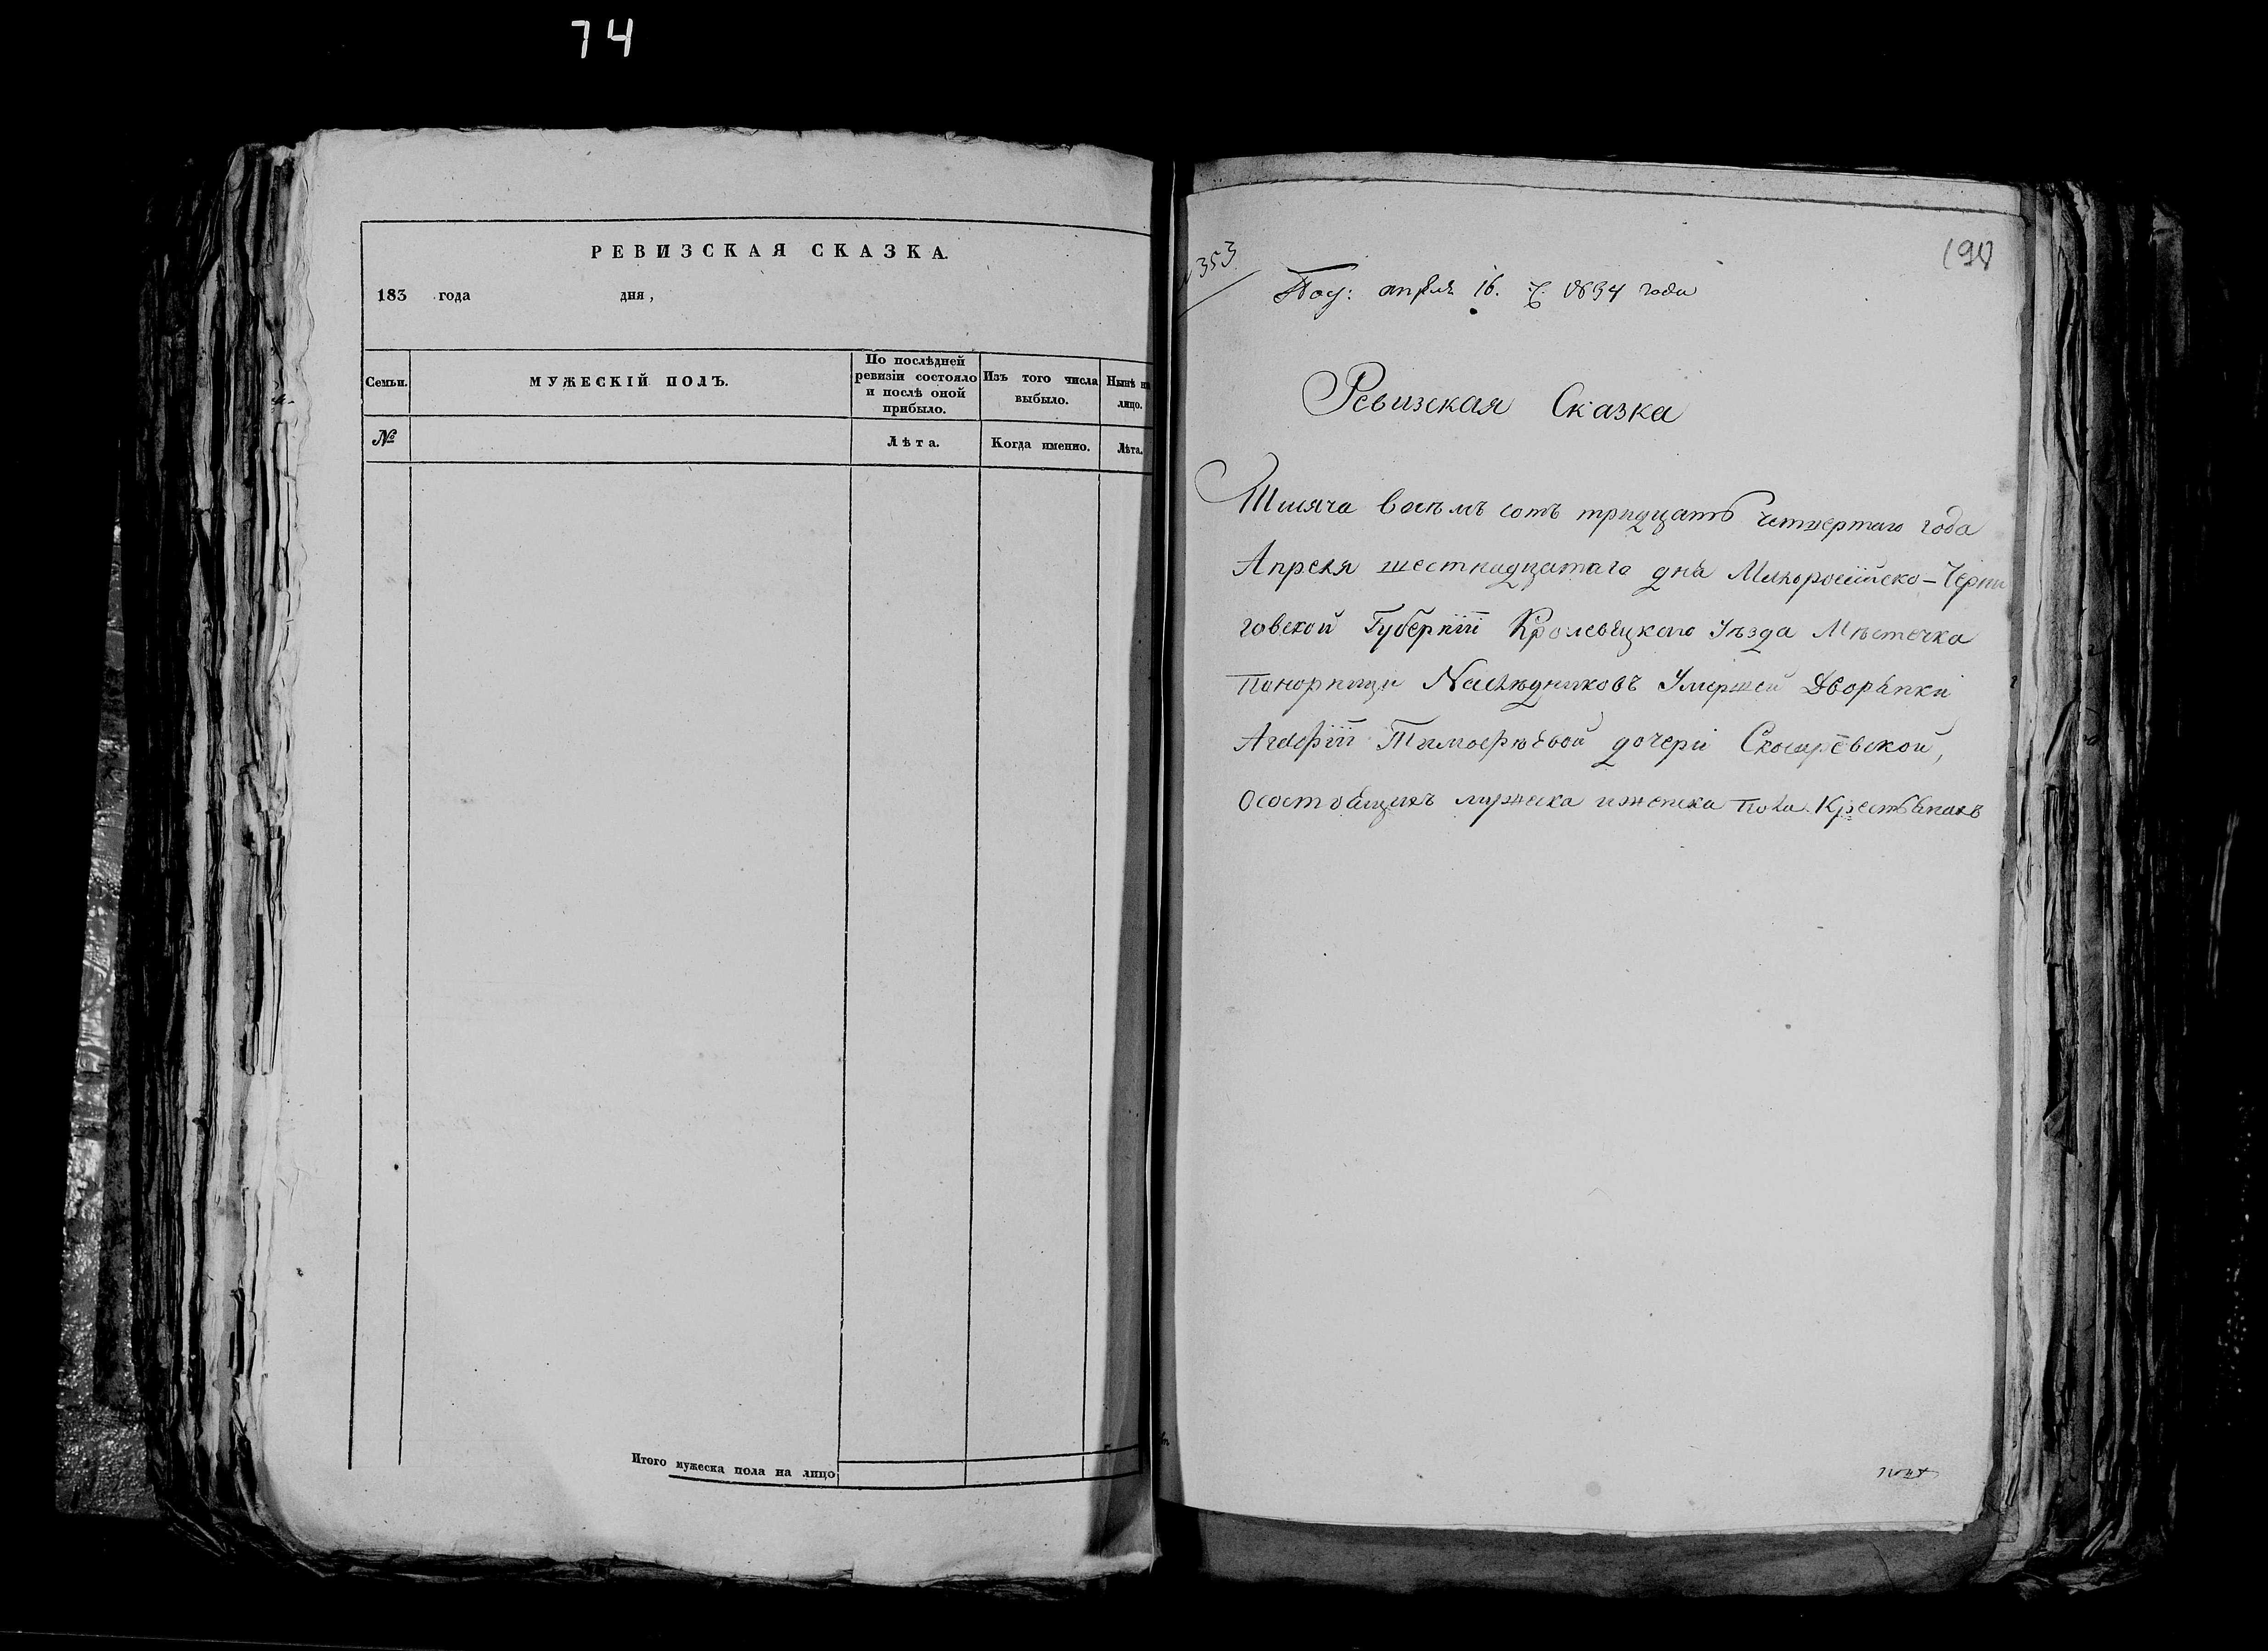 74
РЕВИЗСКАЯ СКАЗКА.
183 года дня,
Семьи. МУЖЕСКІЙ ПОЛЪ. По послѣдней ревизіи состояло и послѣ оной прибыло. Изъ того числа выбыло. Нынѣ на лицо.
№ Лѣта. Когда именно. Лѣта.
Итого мужеска пола на лицо
353
Пол: апреля 16. 1834 года
Ревизская Сказка
Тисяча восѣмъ сотъ тридцать четвертаго года
Апреля шестнадцатаго дня Малоросійско-Черни
говской Губерніи Кролевецкаго Уѣзда Мѣстечка
Понорници Наслѣдниковъ Умершей Дворянки
Агафіи Тимофѣевой дочери
Осостоящихъ мужеска иженска пола Крестьянахъ